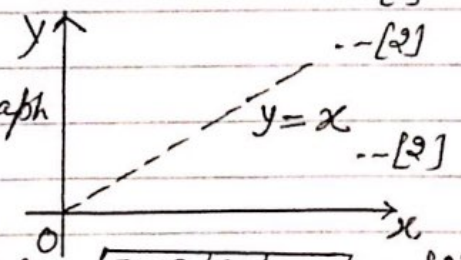 y --[2]
aph
y = x
--[2]
O x